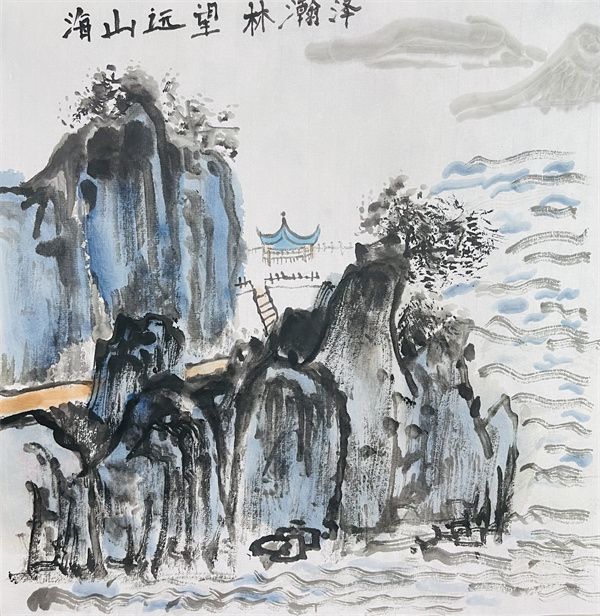 海山远望 林瀚泽